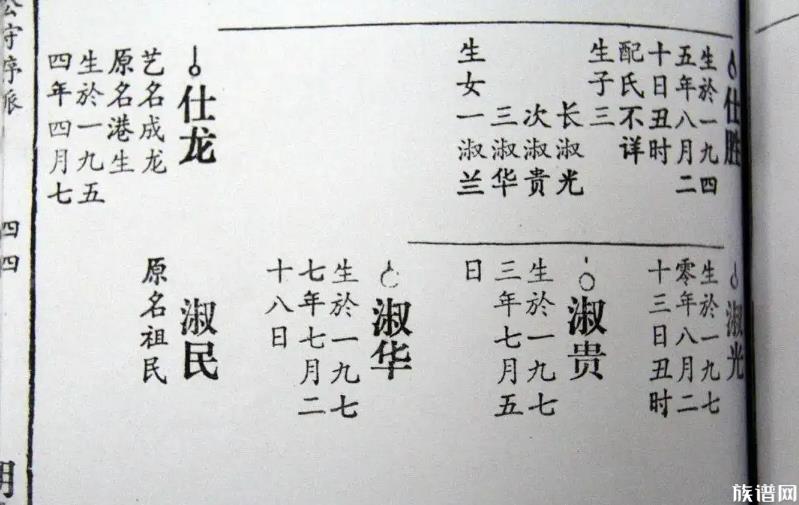 仕胜
生於一九四
五年八月二
十日丑时
配氏不详
生子三
长淑光
次淑贵
三淑华
生女一淑兰
仕龙
艺名成龙
原名港生
生於一九五
四年四月七
淑光
生於一九七
零年八月二
十三日丑时
淑贵
生於一九七
三年七月五
日
淑华
生於一九七
七年七月二
十八日
淑民
原名祖民
四四
族谱网